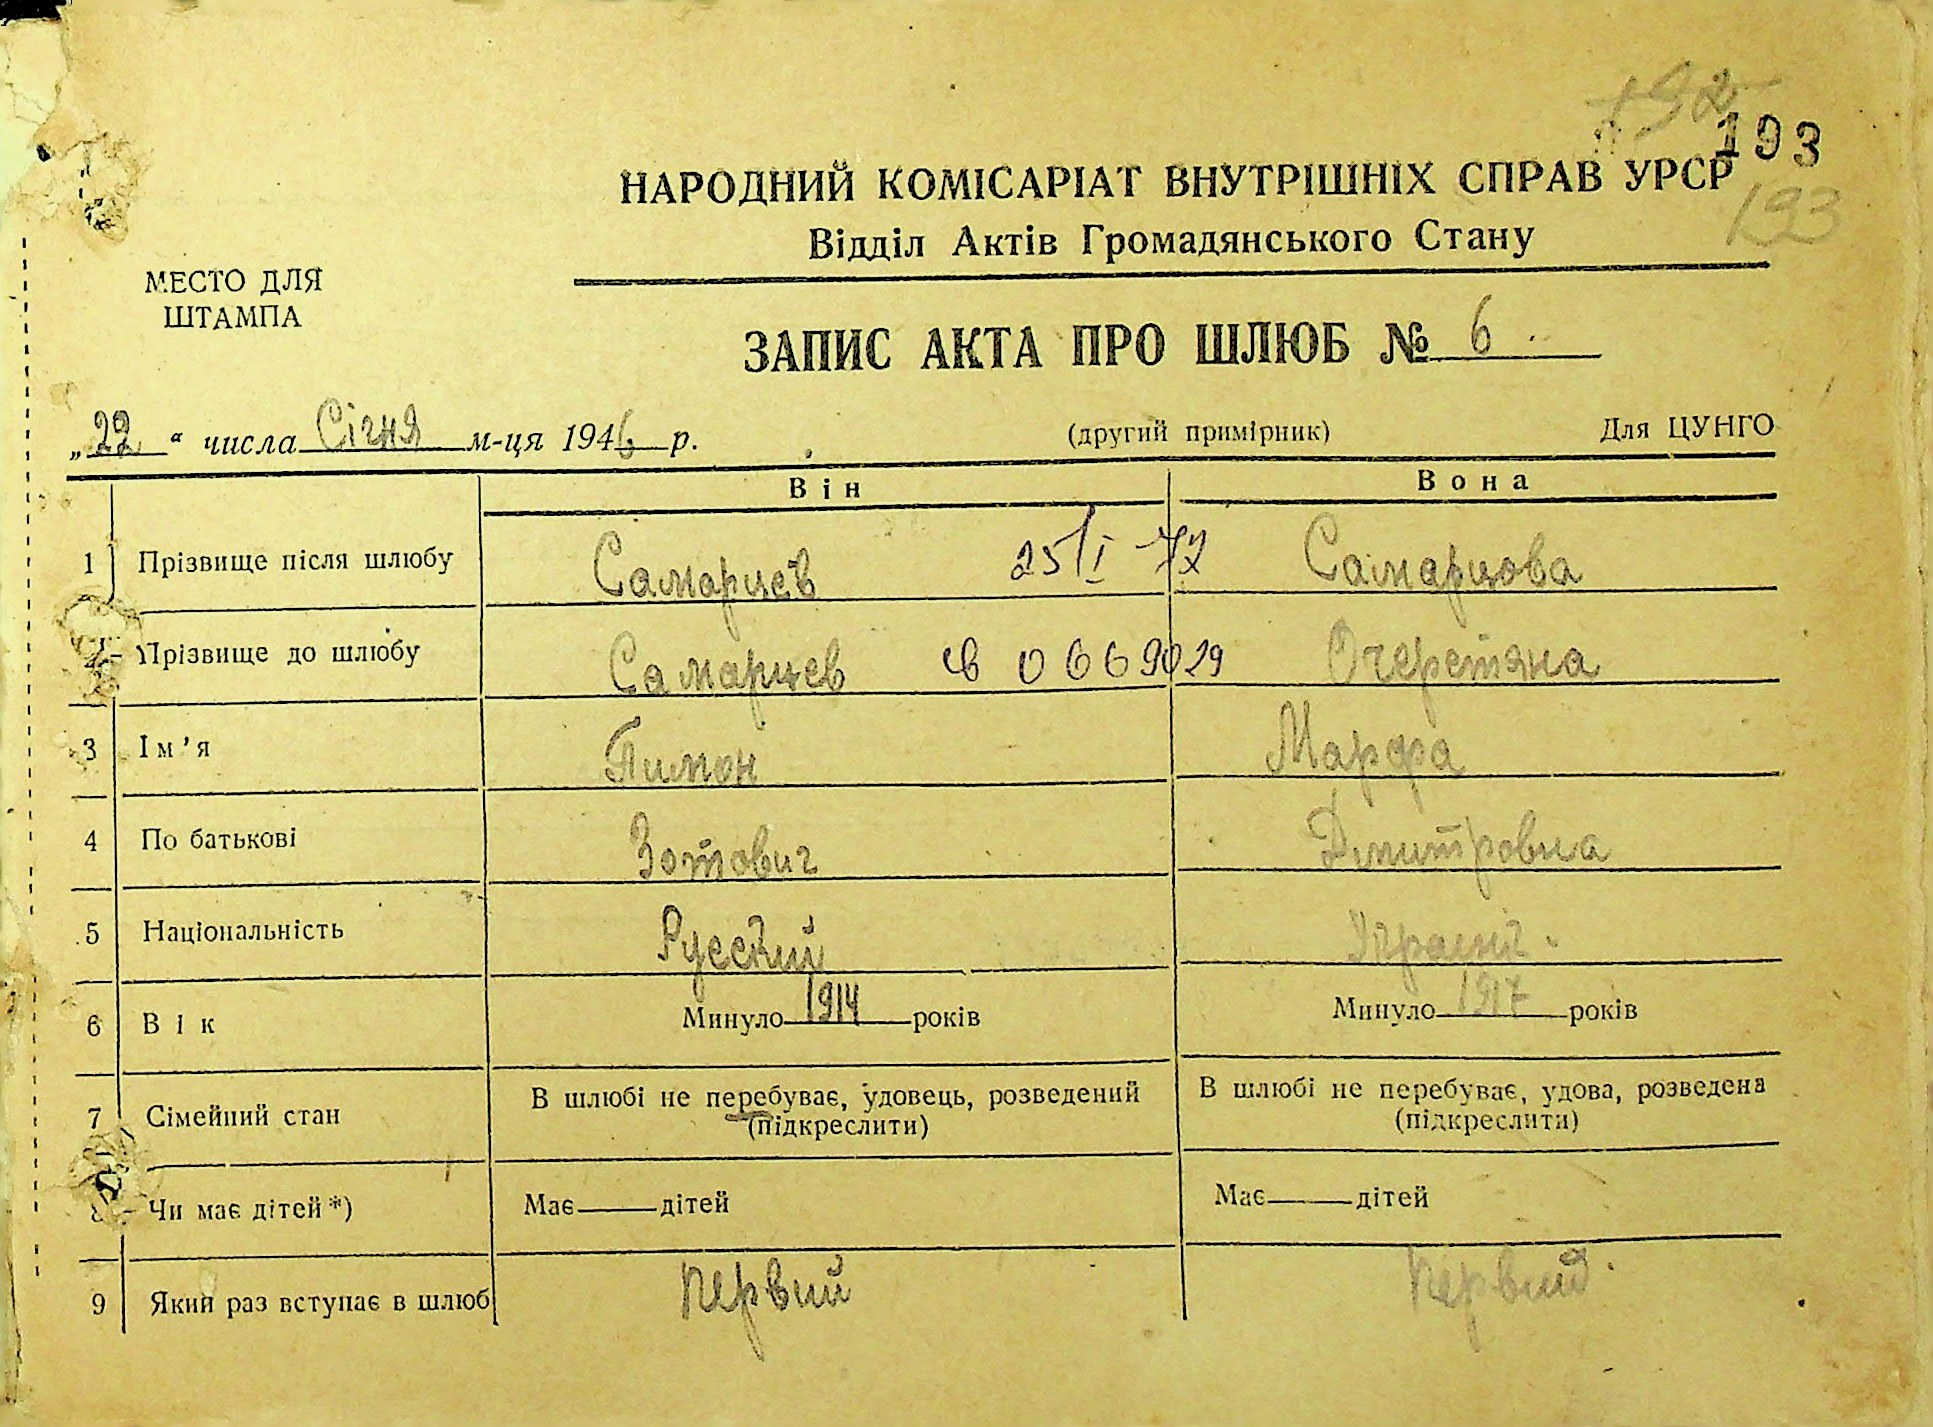 192
193
НАРОДНИЙ КОМІСАРІАТ ВНУТРІШНІХ СПРАВ УРСР
193
Відділ Актів Громадянського Стану
МЕСТО ДЛЯ
ШТАМПА
ЗАПИС АКТА ПРО ШЛЮБ № 6
„22“ числа Січня м-ця 1946 р. (другий примірник) Для ЦУНГО
Він Вона
1 Прізвище після шлюбу Самарцев 25/I-72 Самарцова
2 Прізвище до шлюбу Самарцев 0669029 Очеретяна
3 Ім’я Тимон Марфа
4 По батькові Зотович Дмитровна
5 Національність Русский
6 Вік Минуло 1914 років Минуло 1917 років
7 Сімейний стан В шлюбі не перебуває, удовець, розведений (підкреслити) В шлюбі не перебуває, удова, розведена (підкреслити)
8 Чи має дітей*) Має — дітей Має — дітей
9 Який раз вступає в шлюб Первий Первий